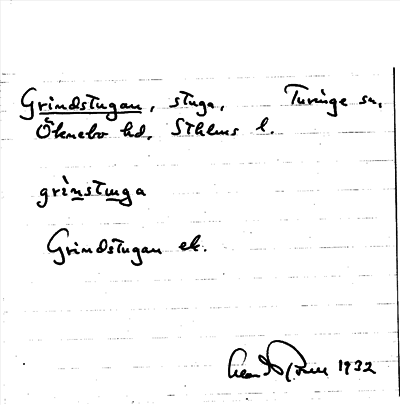 Grindstugan, stuga, Turinge sn,
Öknebo hd, Sthlms l.
grinstuga
Grindstugan ek.
1932